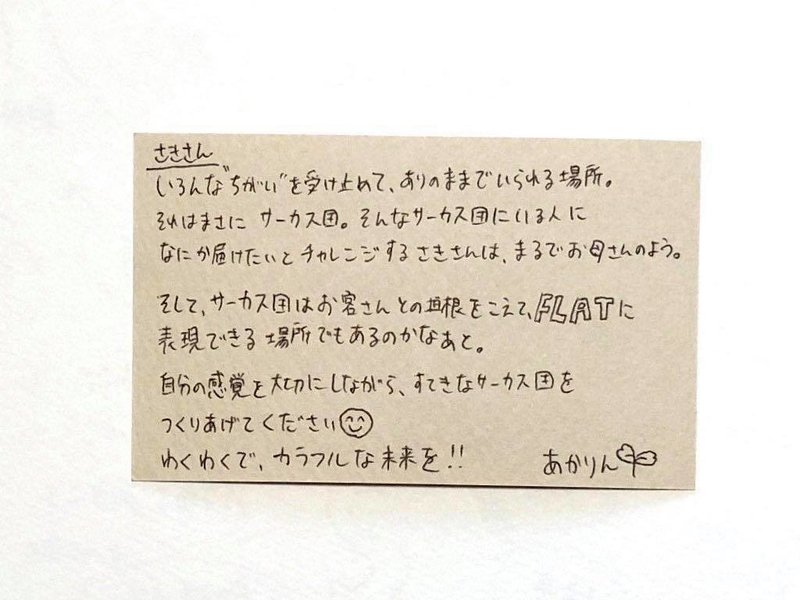 さきさん
いろんな"ちがい"を受け止めて、ありのままでいられる場所。
それはまさに サーカス団。そんなサーカス団にいる人に
なにか届けたいとチャレンジするさきさんは、まるでお母さんのよう。
そして、サーカス団はお客さんとの垣根をこえて、FLATに
表現できる場所でもあるのかなあと。
自分の感覚を大切にしながら、すてきなサーカス団を
つくりあげてください
わくわくで、カラフルな未来を!!
あかりん